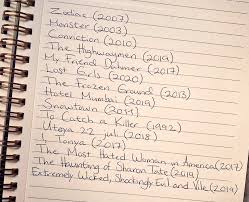 Zodiac (2007)
Monster (2003)
Conviction (2010)
The Highwaymen (2019)
My Friend Dahmer (2017)
Lost Girls (2020)
The Frozen Ground (2013)
Hotel Mumbai (2019)
Snowtown (2011)
To Catch a Killer (1992)
Utoya 22 juli (2018)
I, Tonya (2017)
The Most Hated Woman in America (2017)
The Haunting of Sharon Tate (2019)
Extremely Wicked, Shockingly Evil and Vile (2019)